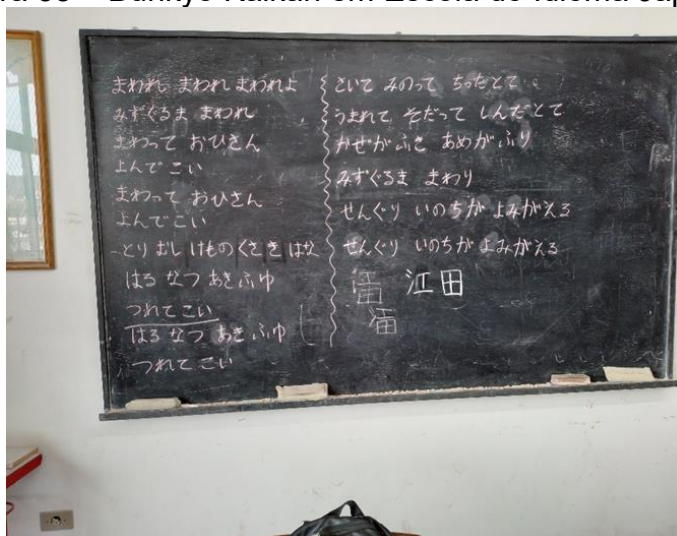 まわれ まわれ まわれよ
みずぐるま まわれ
まわって おひさん
よんでこい
まわって おひさん
よんでこい
とり むし けもの くさ き はな
はる なつ あき ふゆ
つれてこい
はる なつ あき ふゆ
つれてこい
さいて みのって ちったとて
うまれて そだって しんだとて
かぜがふき あめがふり
みずぐるま まわり
せんぐり いのちが よみがえる
せんぐり いのちが よみがえる
江田